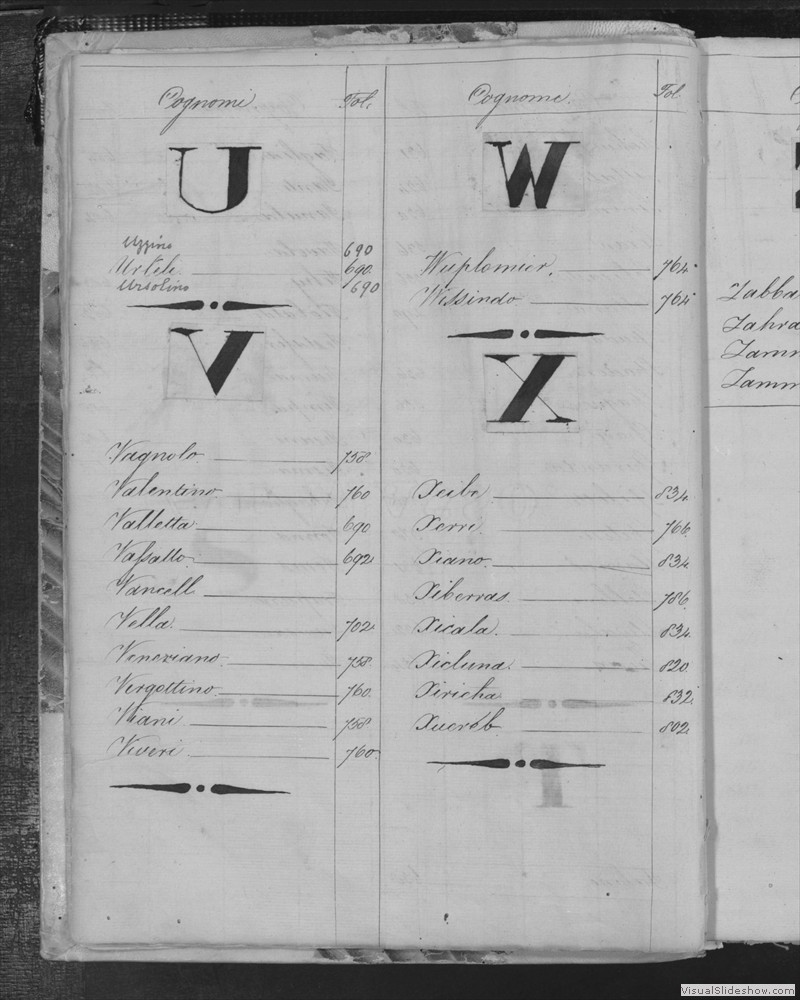 Cognomi Fol.
U
Uzzino 690
Urtele 690
Ursolino 690
V
Vagnolo 758
Valentino 760
Valletta 690
Vassallo 692
Vancell
Vella 702
Veneziano 758
Vergottino 760
Viani 758
Viveri 760
Cognomi Fol
W
Wuplomier 764
Wissindo 764
X
Xeibe 834
Xerri 766
Xiano 834
Xiberras 786
Xicala 834
Xicluna 820
Xiricha 832
Xuereb 802
Zabba
Zahra
Zamm
Zamm
VisualSlideshow.com